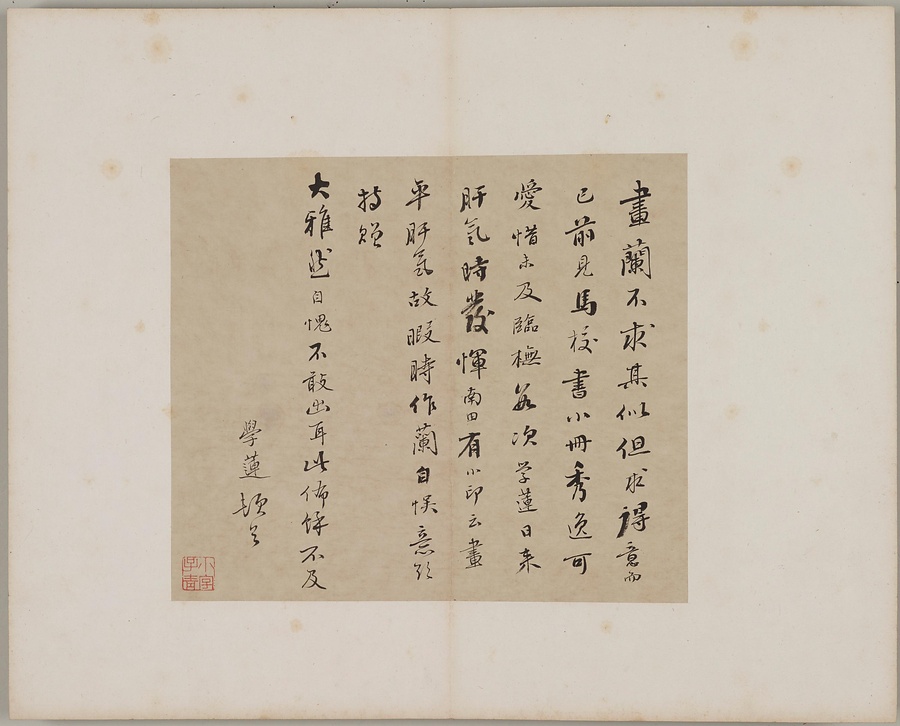 畫蘭不求其似但求得意而
已前見馬校書小冊秀逸可
愛惜未及臨橅每次學蓮日來
肝氣時發惲南田有小印云畫
平肝氣故暇時作蘭自悮意欲
持贈
大雅 自愧不敢出耳此佈 不及
學蓮頓首